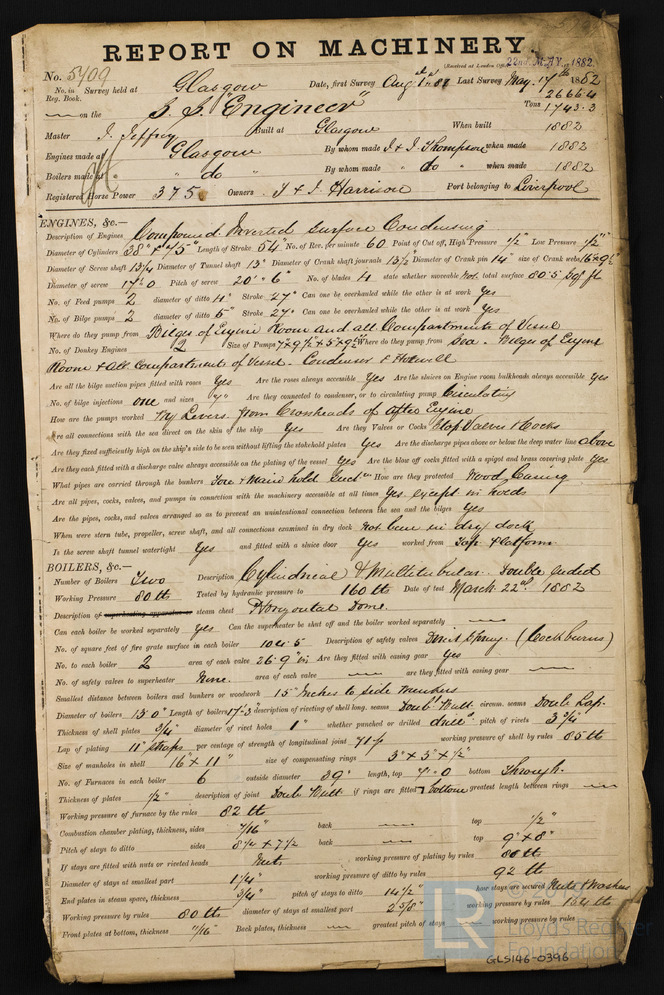 REPORT ON MACHINERY.
(Received at London Office 22nd MAY. 1882
No. 5409
No. in Reg. Book. Survey held at Glasgow Date, first Survey Aug Last Survey May. 17th 1882
on the S. S. "Engineer" Tons 2666.4 1743.3
Master J. Jeffrey Built at Glasgow When built 1882
Engines made at Glasgow By whom made J & J. Thompson when made 1882
Boilers made at " do By whom made " do " when made 1882
Registered Horse Power 375. Owners T & J. Harrison Port belonging to Liverpool
ENGINES, &c.—
Description of Engines Compound Inverted Surface Condensing
Diameter of Cylinders 38" & 75" Length of Stroke 54" No. of Rev. per minute 60 Point of Cut off, High Pressure 1/2" Low Pressure 1/2"
Diameter of Screw shaft 13 3/4 Diameter of Tunnel shaft 13" Diameter of Crank shaft journals 13 1/2 Diameter of Crank pin 14" size of Crank webs 16 x 9 1/2"
Diameter of screw 17'.0 Pitch of screw 20'.6" No. of blades 4 state whether moveable Not. total surface 80.5 Sqr ft
No. of Feed pumps 2 diameter of ditto 4 Stroke 27" Can one be overhauled while the other is at work Yes
No. of Bilge pumps 2 diameter of ditto 5" Stroke 27" Can one be overhauled while the other is at work Yes
Where do they pump from Bilges of Engine Room and all Compartments of Vessel
No. of Donkey Engines 2 Size of Pumps 7 x 9 1/2 & 5 x 9 1/2 Where do they pump from Sea. Bilges of Engine
Room & all Compartments of Vessel. Condenser & Hotwell
Are all the bilge suction pipes fitted with roses Yes Are the roses always accessible Yes Are the sluices on Engine room bulkheads always accessible Yes
No. of bilge injections one and sizes 7" Are they connected to condenser, or to circulating pump Circulating
How are the pumps worked By Levers from Crossheads of after Engine
Are all connections with the sea direct on the skin of the ship Yes Are they Valves or Cocks Stop Valves & Cocks
Are they fixed sufficiently high on the ship's side to be seen without lifting the stokehold plates Yes Are the discharge pipes above or below the deep water line above
Are they each fitted with a discharge valve always accessible on the plating of the vessel Yes Are the blow off cocks fitted with a spigot and brass covering plate Yes
What pipes are carried through the bunkers Fore & Main hold Suctn How are they protected Wood Casing
Are all pipes, cocks, valves, and pumps in connection with the machinery accessible at all times Yes. except in holds
Are the pipes, cocks, and valves arranged so as to prevent an unintentional connection between the sea and the bilges Yes
When were stern tube, propeller, screw shaft, and all connections examined in dry dock Not been in dry dock
Is the screw shaft tunnel watertight Yes and fitted with a sluice door Yes worked from Top. Platform
BOILERS, &c.—
Number of Boilers Two Description Cylindrical & Multitubular. Double ended
Working Pressure 80 lb Tested by hydraulic pressure to 160 lb Date of test March. 22nd. 1882
Description of superheating apparatus or steam chest Horizontal Dome.
Can each boiler be worked separately Yes Can the superheater be shut off and the boiler worked separately —
No. of square feet of fire grate surface in each boiler 104.5 Description of safety valves Direct Spring. (Cockburns)
No. to each boiler 2 area of each valve 26.9"in Are they fitted with easing gear Yes
No. of safety valves to superheater None. area of each valve — are they fitted with easing gear —
Smallest distance between boilers and bunkers or woodwork 15" inches to side bunkers
Diameter of boilers 13'.0" Length of boilers 17'.3" description of riveting of shell long. seams Doub Butt. circum. seams Doub Lap.
Thickness of shell plates 3/4" diameter of rivet holes 1" whether punched or drilled drill. pitch of rivets 3 3/4"
Lap of plating 11" straps per centage of strength of longitudinal joint 71.4 working pressure of shell by rules 85 lb
Size of manholes in shell 16" x 11" size of compensating rings 3" x 3" x 1/2"
No. of Furnaces in each boiler 6 outside diameter 39" length, top 7'.0 bottom through.
Thickness of plates 1/2" description of joint Doub Butt if rings are fitted bottom greatest length between rings —
Working pressure of furnace by the rules 82 lb
Combustion chamber plating, thickness, sides 7/16" back — top 1/2"
Pitch of stays to ditto sides 8 1/4 x 7 1/2 back — top 9" x 8"
If stays are fitted with nuts or riveted heads Nuts working pressure of plating by rules 80 lb
Diameter of stays at smallest part 1 1/4" working pressure of ditto by rules 92 lb
End plates in steam space, thickness 3/4" pitch of stays to ditto 14 1/2" how stays are secured Nuts & Washers
Working pressure by rules 80 lb diameter of stays at smallest part 2 5/8" working pressure by rules 154 lb
Front plates at bottom, thickness 11/16" Back plates, thickness — greatest pitch of stays — working pressure by rules —
LR
Lloyd's Register
Foundation
GLS146-0396